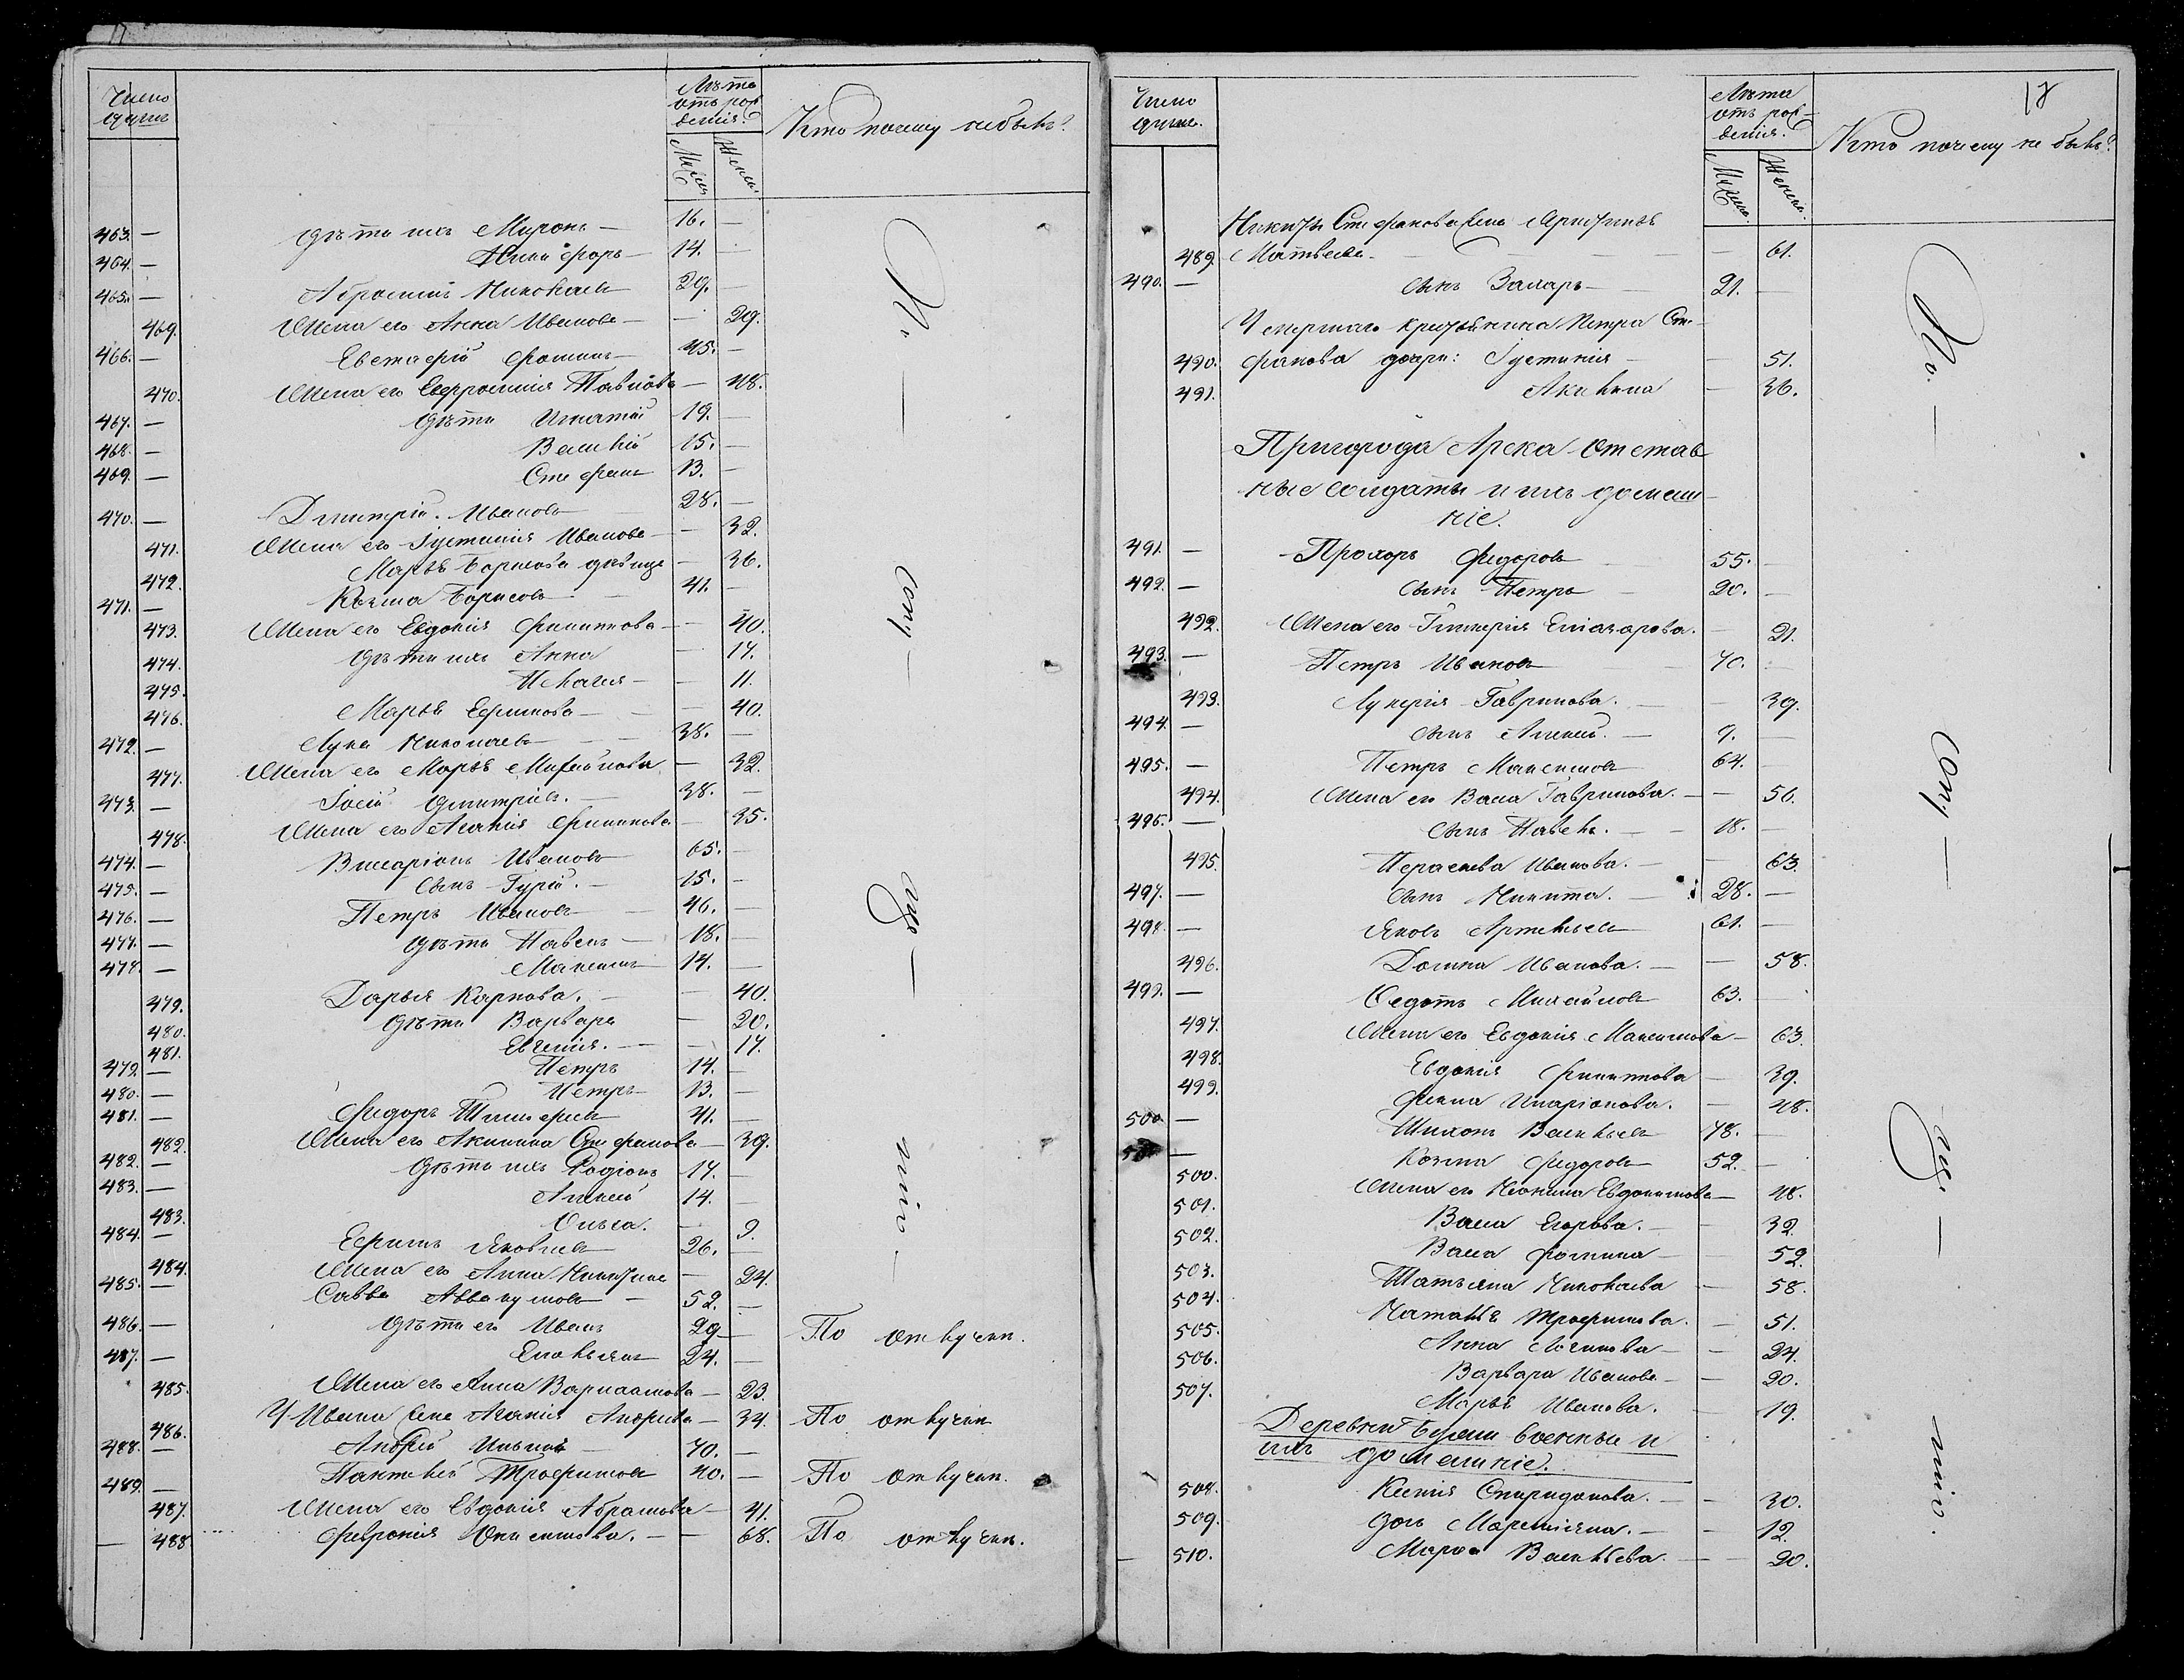 17
Число
душъ
Лѣта
отъ рож
денія.
Мужск.
Женск.
Кто почему не былъ?
463. — дѣти ихъ Миронъ — 16. —
464. — Никифоръ — 14. —
465. — Абросимъ Николаевъ 29. —
469. Жена его Анна Иванова — — 29.
466. — Евстафій Фоминъ 45. —
470. Жена его Евфросинія Павлова — 48.
467. — дѣти Игнатій 19. —
468. — Василій 15. —
469. — Стефанъ 13. —
470. — Дмитрій Ивановъ 28. —
471. Жена его Іустинія Иванова — 32.
472. Марья Борисова дѣвица — 36.
471. — Козма Борисовъ 41. —
473. Жена его Евдокія Филиппова — 40.
474. дѣти ихъ Анна — 17.
475. Пелагея — — 11.
476. Марья Ефимова — — 40.
472. — Лука Николаевъ — 38. —
477. Жена его Марья Михайлова — 32.
473. — Іосій Дмитріевъ. — 38. —
478. Жена его Агафія Филиппова — 35.
474. — Виссаріонъ Ивановъ 65. —
475. — сынъ Гурій. — 15. —
476. — Петръ Ивановъ 46. —
477. — дѣти Павелъ — 18. —
478. — Максимъ 14. —
479. Дарья Карпова. — — 40.
480. дѣти Варвара — 20.
481. Евгенія. — — 17.
479. — Петръ 14. —
480. — Петръ 13. —
481. — Федоръ Тимофеевъ 41. —
482. Жена его Акилина Стефанова — 39.
482. — дѣти ихъ Родіонъ 17. —
483. — Алексѣй 14. —
483. Ольга. — 9.
484. — Ефимъ Яковлевъ 26. —
484. Жена его Анна Никитина — 24.
485. — Савва Аввакумовъ — 52. —
486. — дѣти его Иванъ 29 — По отлучкѣ.
487. — Емельянъ 24. —
485. Жена его Анна Варлаамова — 23.
486. У Ивана жена Агафія Андреева — 34. По отлучкѣ
488. — Андрей Ильинъ — 70. —
489. — Пантелей Трофимовъ 40. — По отлучкѣ.
487. Жена его Евдокія Абрамова — 41.
488 Февронія Онисимова. — — 68. По отлучкѣ.
По — сту — дѣ — нію —
18
Число
душъ.
Лѣта
отъ рож-
денія.
Мужск.
Женск.
Кто почему не былъ?
Никиты Стефанова жена
489. Матвеева. — — 61.
490. — сынъ Захаръ — 21. —
Умершаго крестьянина Петра Сте-
490. фанова дочери: Іустинія — — 51.
491. Акилина — 36.
Пригорода Арска отстав
ные солдаты и ихъ домаш-
ніе.
491. — Прохоръ Федоровъ 55. —
492. — сынъ Петръ — 20. —
492. Жена его Гликерія Елиазарова. — 21.
493. — Петръ Ивановъ 70. —
493. Лукерія Гаврилова. — — 39.
494. — сынъ Алексѣй. — 9. —
495. — Петръ Максимовъ 64. —
494. Жена его Васса Гаврилова. — — 56.
496. — сынъ Павелъ. — 18. —
495. Параскева Иванова. — — 63.
497. — сынъ Никита. — 28. —
498. — Яковъ Артемьевъ 61. —
496. Домна Иванова. — — 58.
499. — Федотъ Михайловъ 63. —
497. Жена его Евдокія Максимова — 63.
498. Евдокія Филиппова — 39.
499. Фекла Иларіонова. — 48.
500. — Тихонъ Васильевъ 78. —
501 — Козма Федоровъ 52. —
500. Жена его Неонила Евдокимова — 48.
501. Васса Егорова. — — 32.
502. Васса Фомина — — 52.
503. Татьяна Николаева — 58.
504. Наталья Трофимова. — 51.
505. Анна Логинова — — 24.
506. Варвара Иванова — — 20.
507. Марья Иванова. — 19.
Деревни военные и
ихъ домашніе.
508. Ксенія Спиридонова. — — 30.
509. дочь Мареміяна. — — 12.
510. Марѳа Васильева. — — 20.
По. — сту — дѣ — нію.